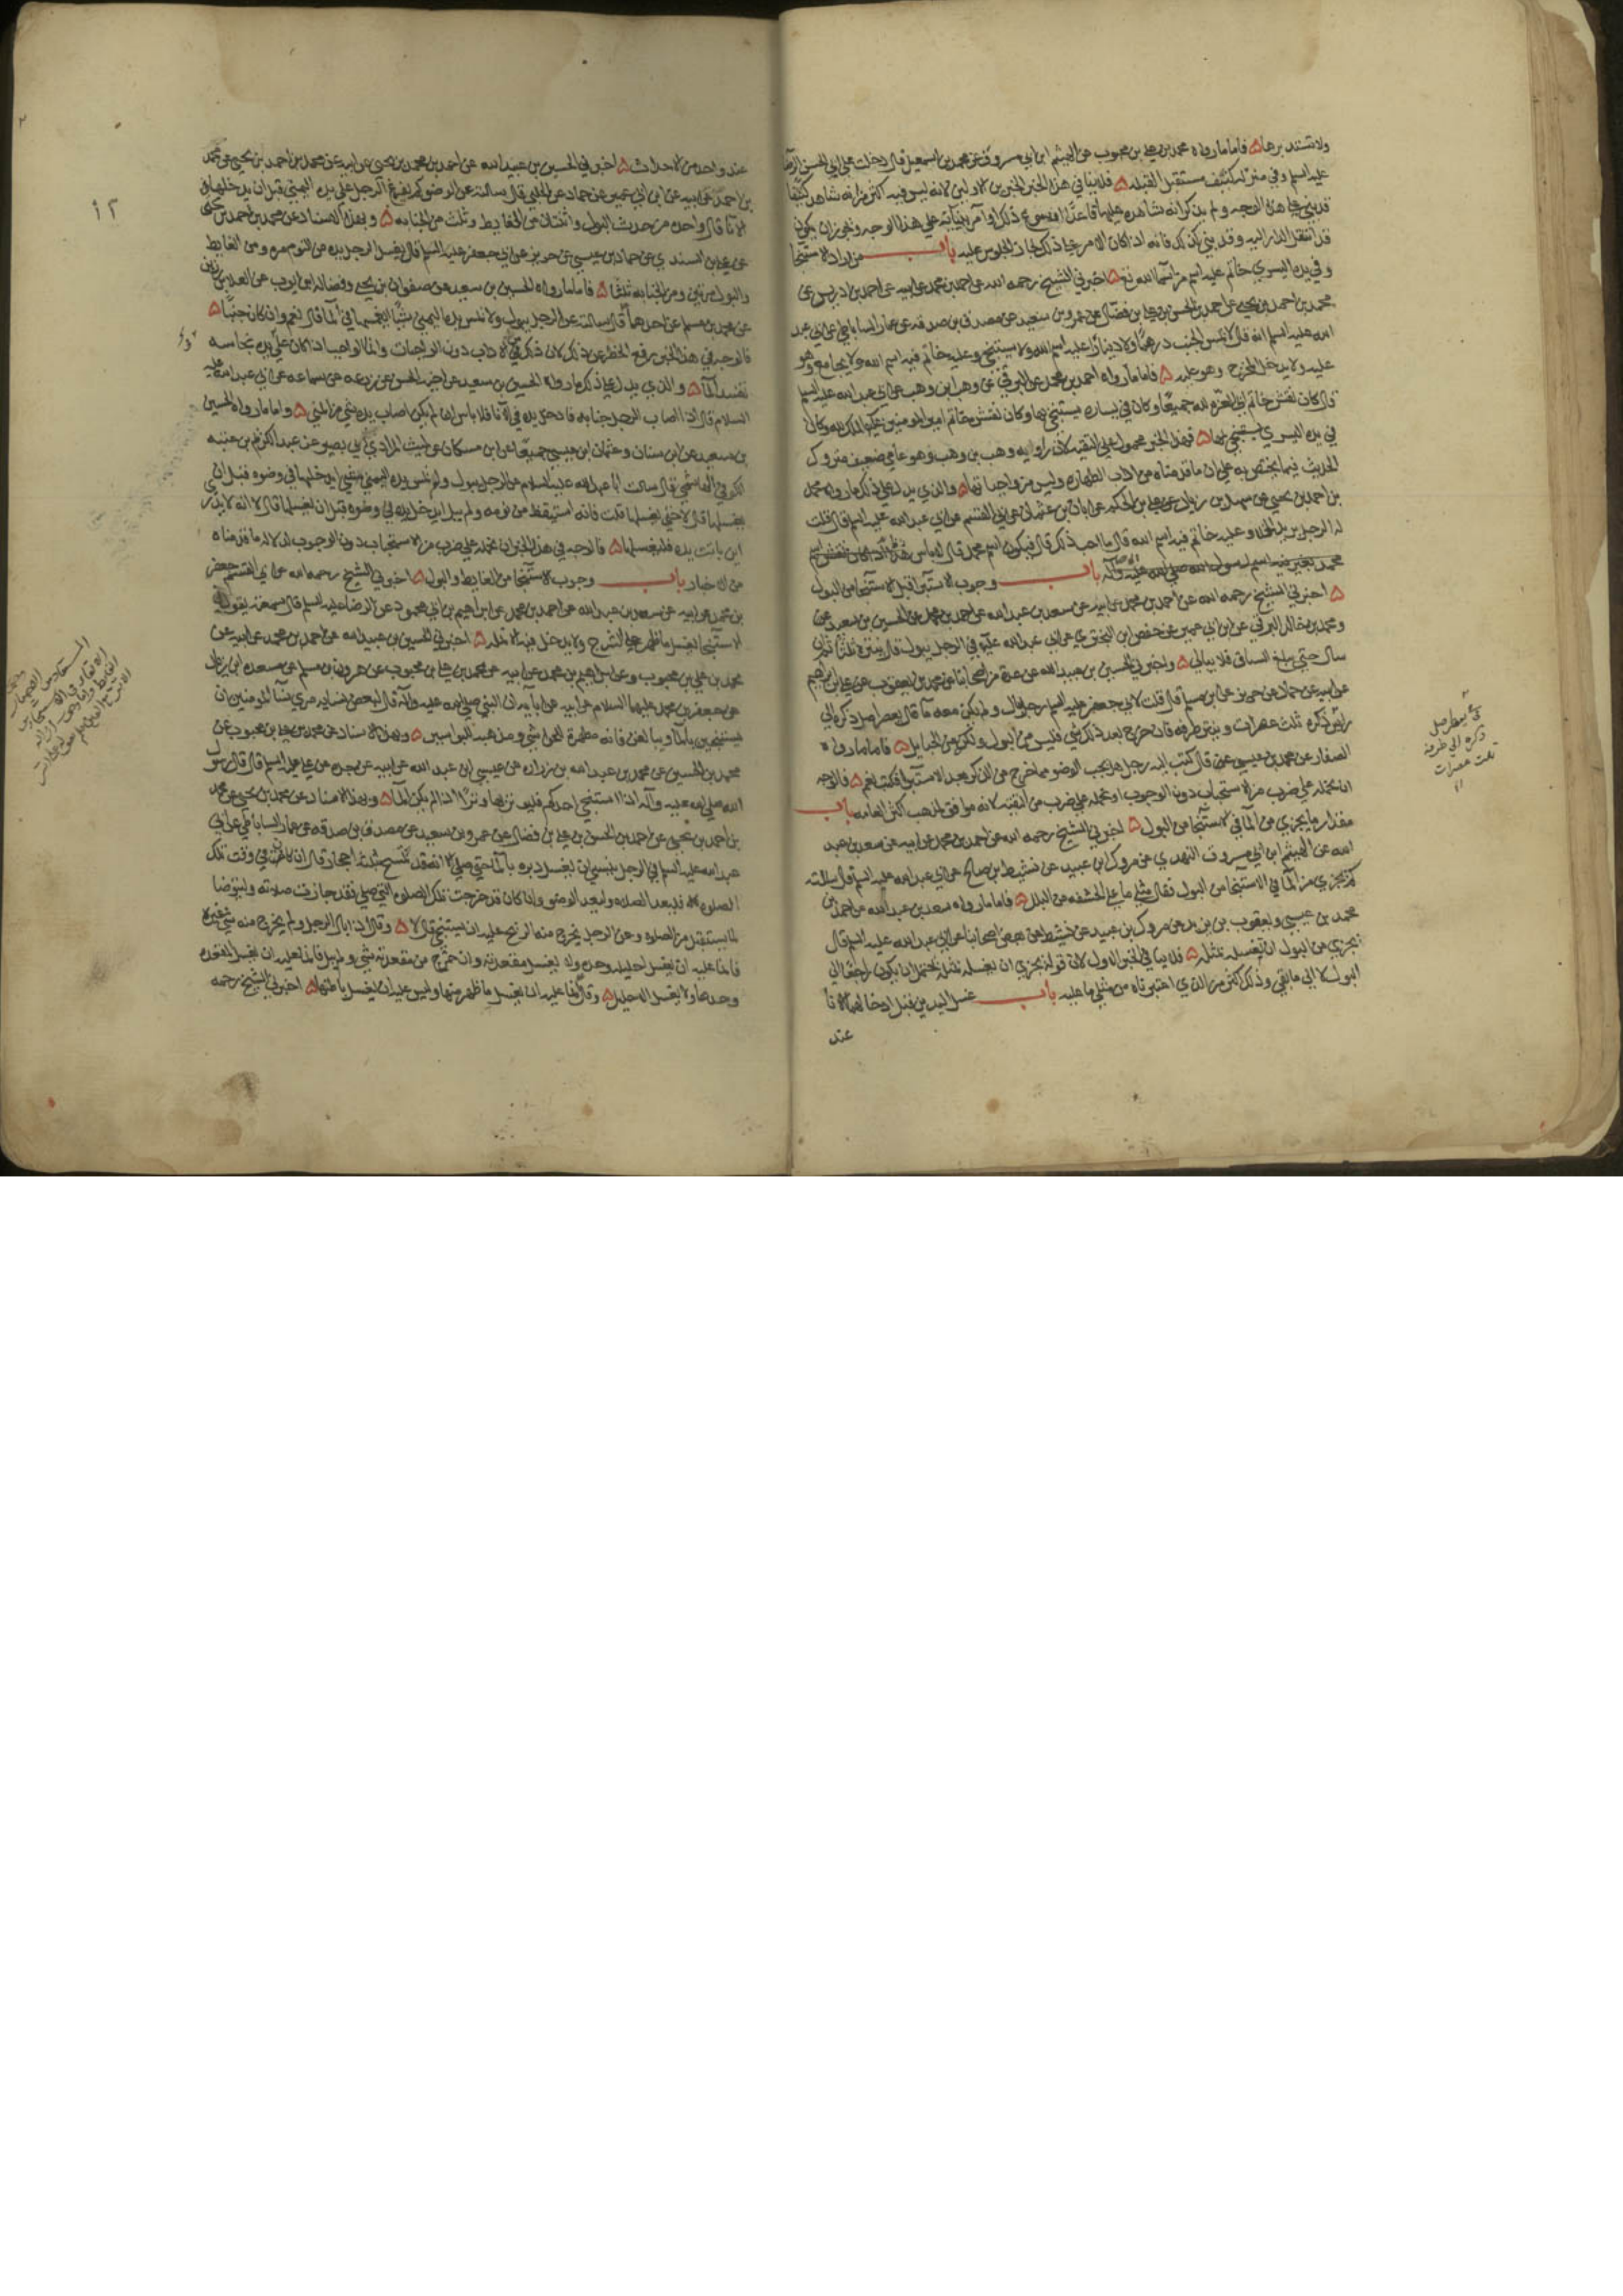 ولا تستدبرها ۵ فاما ما رواه محمد بن علي بن محبوب عن الهيثم ابن ابي مسروق عن محمد بن اسمعيل قال دخلت على ابي الحسن الرضا
عليه السلم وفي منزله كنيف مستقبل القبله ۵ فلا ينافي هذا الخبر الخبرين الاولين لانه ليس فيه اكثر من انه شاهد كنيفا
قد بني على هذا الوجه ولم يذكر انه شاهده عليها قاعدا
قد انتقل الدار اليه وقد بني كذلك فانه اذا كان الامر على ذلك لجاز الجلوس عليه باب من اراد الاستنجا
وفي يده اليسرى خاتم عليه اسم من اسما الله تع ۵ اخبرني الشيخ رحمه الله عن احمد بن محمد عن ابيه عن احمد بن ادريس عن
محمد بن احمد بن يحيى عن احمد بن الحسن بن علي بن فضال عن عمرو بن سعيد عن مصدق بن صدقه عن عمار الساباطي عن ابي عبد
الله عليه السلم انه قال لا يمس الجنب درهما ولا دينارا عليه اسم الله ولا يستنجي وعليه خاتم فيه اسم الله ولا يجامع وهو
عليه ولا يدخل المخرج وهو عليه ۵ فاما ما رواه احمد بن محمد عن البرقي عن وهب ابن وهب عن ابي عبد الله عليه السلم
قال كان نقش خاتم ابي العزه لله جميعا وكان في يساره يستنجي بها وكان نقش خاتم امير المومنين عليه الملك لله وكان
في يده اليسرى يستنجي بها ۵ فهذا الخبر محمول على التقيه لان راويه وهب بن وهب وهو عامي ضعيف متروك
الحديث فيما يختص به على ان ما قدمناه من اداب الطهاره وليس من واجباتها ۵ والذي يدل على ذلك ما رواه محمد
بن احمد بن يحيى عن سهل بن زياد عن علي بن الحكم عن ابان بن عثمان عن ابي القسم عن ابي عبد الله عليه السلم قال قلت
له الرجل يريد الخلا وعليه خاتم فيه اسم الله قال ما احب ذلك قال فيكون اسم محمد قال لا باس
باب وجوب الاستبرا قبل الاستنجا من البول
۵ اخبرني الشيخ رحمه الله عن احمد بن محمد عن ابيه عن سعد بن عبد الله عن احمد بن محمد عن الحسين بن سعيد
ومحمد بن خالد البرقي عن ابن ابي عمير عن حفص ابن البختري عن ابي عبد الله عليه في الرجل يبول قال ينتره ثلثا ثم ان
سال حتى يبلغ الساق فلا يبالي ۵ واخبرني الحسين بن عبيد الله عن عدة من اصحابنا عن محمد بن يعقوب عن علي ابن ابرهيم
عن ابيه عن حماد عن حريز عن ابن مسلم قال قلت لابي جعفر عليه السلم رجل بال ولم يكن معه ما قال يعصر اصل ذكره الى
راس ذكره ثلث عصرات وينتر طرفه فان خرج بعد ذلك شي فليس من البول ولكنه من الحبايل ۵ فاما ما رواه
الصفار عن محمد بن عيسى قال كتب اليه رجل هل يجب الوضو مما خرج من الذكر بعد الاستبرا فكتب نعم ۵ فالوجه
ان نحمله على ضرب من الاستحباب دون الوجوب او نحمله على ضرب من التقيه لانه موافق لمذهب اكثر العامه باب
مقدار ما يجزي من الما في الاستنجا من البول ۵ اخبرني الشيخ رحمه الله عن احمد بن محمد عن ابيه عن سعد بن عبد
الله عن الهيثم ابن ابي مسروق النهدي عن مروك ابن عبيد عن نشيط بن صالح عن ابي عبد الله عليه السلم قال سالته
كم يجزي من الما في الاستنجا من البول فقال مثلي ما على الحشفه من البلل ۵ فاما ما رواه سعد بن عبد الله عن احمد بن
محمد بن عيسى ويعقوب بن يزيد عن مروك بن عبيد عن نشيط عن بعض اصحابنا عن ابي عبد الله عليه السلم قال
يجزي من البول ان تغسله بمثله ۵ فلا ينافي الخبر الاول لان قوله يجزي ان يغسله بمثله يحتمل ان يكون راجعا الى
البول لا الى ما بقي وذلك اكثر من الذي اعتبرناه من مثلي ما عليه باب غسل اليدين قبل ادخالهما الانا
عند
يعصر اصل
ذكره الى طرفه
ثلث عصرات
١٢
عند واحد من الاحداث ۵ اخبرني الحسين بن عبيد الله عن احمد بن محمد بن يحيى عن ابيه عن محمد بن احمد بن يحيى عن محمد
بن احمد عن ابيه عن ابن ابي عمير عن حماد عن الحلبي قال سالته عن الوضو كم يفرغ الرجل على يده اليمنى قبل ان يدخلها في
الانا قال واحده من حدث البول واثنتان من الغايط وثلث من الجنابه ۵ وبهذا الاسناد عن محمد بن احمد بن يحيى
عن علي بن السندي عن حماد بن عيسى عن حريز عن ابي جعفر عليه السلم قال يغسل الرجل يده من النوم مره ومن الغايط
والبول مرتين ومن الجنابه ثلثا ۵ فاما ما رواه الحسين بن سعيد عن صفوان بن يحيى وفضاله ابن ايوب عن العلا بن رزين
عن محمد بن مسلم عن احدهما قال سالته عن الرجل يبول ولا تمس يده اليمنى شيا ايغمسها في الما قال نعم وان كان جنبا ۵
فالوجه في هذا الخبر رفع الحظر عن ذلك لان ذلك من الاداب دون الواجبات وانما الواجب اذا كان على يده نجاسه
تفسد الما ۵ والذي يدل على ذلك ما رواه الحسين بن سعيد عن اخيه الحسن عن زرعه عن سماعه عن ابي عبد الله عليه
السلام قال اذا اصاب الرجل جنابه فادخل يده في الانا فلا باس ان لم يكن اصاب يده شي من المني ۵ واما ما رواه الحسين
بن سعيد عن ابن سنان وعثمان ابن عيسى جميعا عن ابن مسكان عن ليث المرادي ابي بصير عن عبد الكريم بن عتبه
الكوفي الهاشمي قال سالت ابا عبد الله عليه السلام عن الرجل يبول ولم تمس يده اليمنى شي ايدخلها في وضوه قبل ان
يغسلها قال لا حتى يغسلها قلت فانه استيقظ من نومه ولم يبل ايدخل يده في وضوه قبل ان يغسلها قال لا لانه لا يدري
اين باتت يده فليغسلها ۵ فالوجه في هذا الخبر ان نحمله على ضرب من الاستحباب دون الوجوب لدلاله ما قدمناه
من الاخبار باب وجوب الاستنجا من الغايط والبول ۵ اخبرني الشيخ رحمه الله عن ابي القسم جعفر
بن محمد عن ابيه عن سعد بن عبد الله عن احمد بن محمد عن ابراهيم بن ابي محمود عن الرضا عليه السلم قال سمعته يقول في
الاستنجا يغسل ما ظهر على الشرج ولا يدخل فيه الانمله ۵ اخبرني الحسين بن عبيد الله عن احمد بن محمد عن ابيه عن
محمد بن علي بن محبوب وعن ابراهيم بن محمد عن ابيه عن محمد بن علي بن محبوب عن هرون بن مسلم عن مسعده ابن زياد
عن جعفر بن محمد عليهما السلام عن ابيه عن ابايه ان النبي صلى الله عليه واله قال لبعض نسايه مري نسا المومنين ان
يستنجين بالما ويبالغن فانه مطهرة للحواشي ومذهبه للبواسير ۵ وبهذا الاسناد عن محمد بن علي بن محبوب عن
محمد بن الحسين عن محمد بن عبد الله بن زراره عن عيسى ابن عبد الله عن ابيه عن جده عن علي عليه السلم قال قال رسول
الله صلى الله عليه واله اذا استنجى احدكم فليوتر بها وترا اذا لم يكن الما ۵ وبهذا الاسناد عن محمد بن يحيى عن محمد
بن احمد بن يحيى عن احمد بن الحسن بن علي بن فضال عن عمرو بن سعيد عن مصدق بن صدقه عن عمار الساباطي عن ابي
عبد الله عليه السلم في الرجل ينسى ان يغسل دبره بالما حتى صلى الا انه قد تمسح بثلثه احجار قال ان كان في وقت تلك
الصلوه فليعد الصلاه وليعد الوضو وان كان قد خرجت تلك الصلوه التي صلى فقد جازت صلاته وليتوضا
لما يستقبل من الصلوه وعن الرجل يخرج منه الريح عليه ان يستنجي قال لا ۵ وقال اذا بال الرجل ولم يخرج منه شي غيره
فانما عليه ان يغسل احليله وحده ولا يغسل مقعدته وان خرج من مقعدته شي ولم يبل فانما عليه ان يغسل المقعده
وحدها ولا يغسل الاحليل ۵ وقال انما عليه ان يغسل ما ظهر منها وليس عليه ان يغسل باطنها ۵ اخبرني الشيخ رحمه